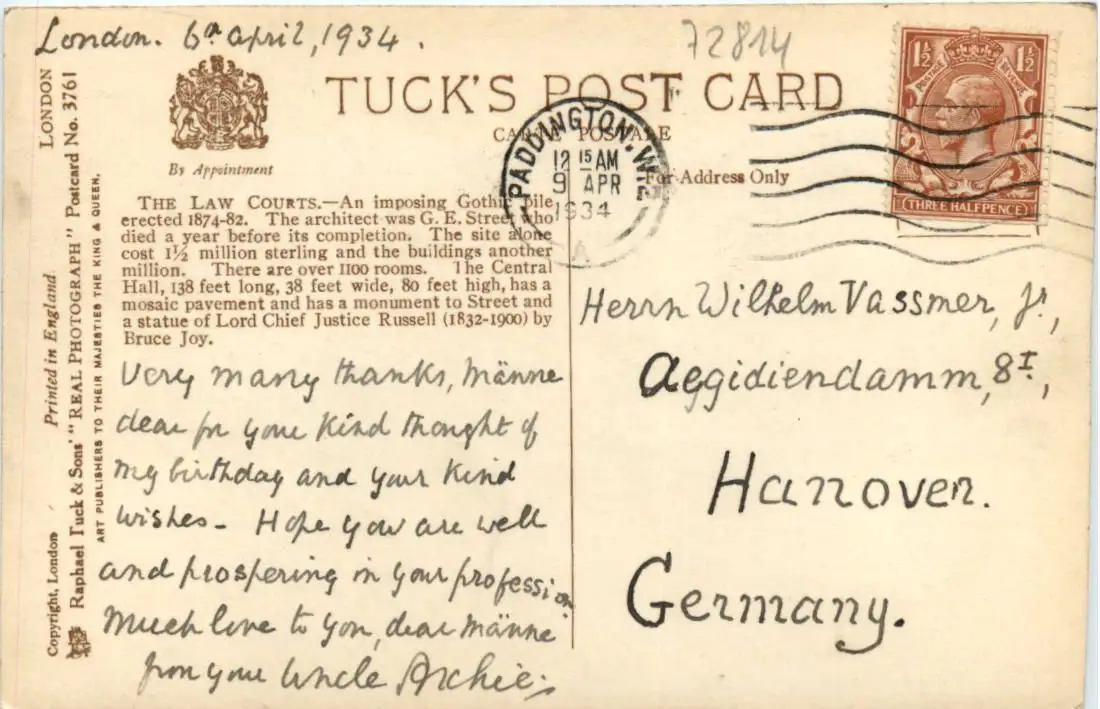 London. 6th April, 1934.
72814
LONDON
Raphael Tuck & Sons' "REAL PHOTOGRAPH" Postcard No. 3761
ART PUBLISHERS TO THEIR MAJESTIES THE KING & QUEEN.
Copyright, London
Printed in England
By Appointment
TUCK'S POST CARD
CARTE POSTALE
For Address Only
PADDINGTON. W.2
12 15 AM
9 APR
1934
A
1½ 1½
POSTAGE REVENUE
THREE HALFPENCE
THE LAW COURTS.—An imposing Gothic pile
erected 1874-82. The architect was G. E. Street who
died a year before its completion. The site alone
cost 1½ million sterling and the buildings another
million. There are over 1100 rooms. The Central
Hall, 138 feet long, 38 feet wide, 80 feet high, has a
mosaic pavement and has a monument to Street and
a statue of Lord Chief Justice Russell (1832-1900) by
Bruce Joy.
Very many thanks, Männe
dear for your kind thought of
my birthday and your kind
wishes - Hope you are well
and prospering in your profession
Much love to you, dear Männe
from your Uncle Archie.
Herrn Wilhelm Vassmer, jr,
Aegidiendamm, 8 I,
Hanover.
Germany.